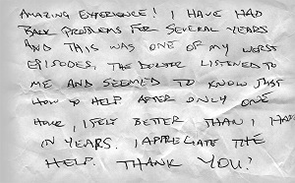 AMAZING EXPERIENCE! I HAVE HAD
BACK PROBLEMS FOR SEVERAL YEARS
AND THIS WAS ONE OF MY WORST
EPISODES, THE DOCTOR LISTENED TO
ME AND SEEMED TO KNOW JUST
HOW TO HELP AFTER ONLY ONE
HOUR, I FELT BETTER THAN I HAVE
IN YEARS. I APPRECIATE THE
HELP. THANK YOU!